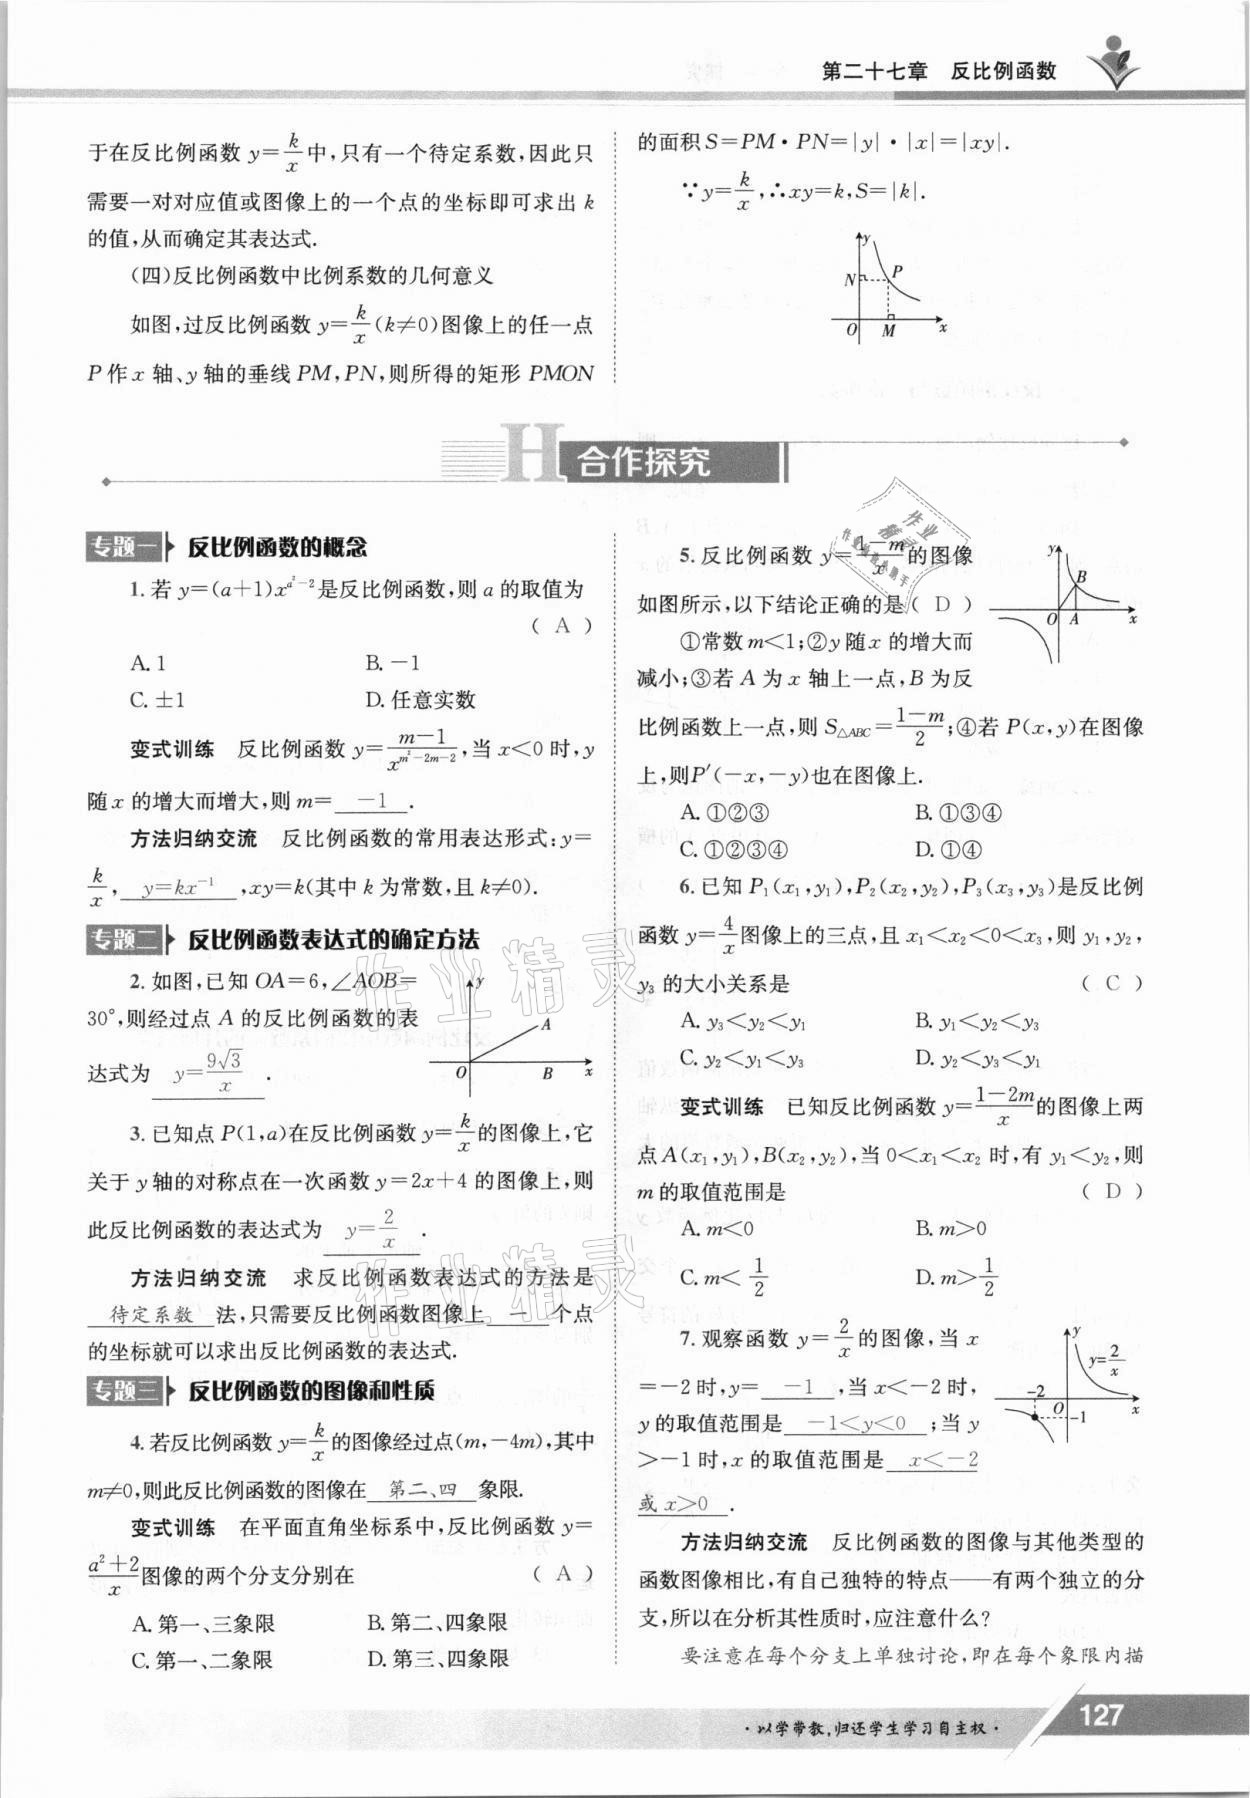 第二十七章　反比例函数
于在反比例函数 y=k/x 中,只有一个待定系数,因此只
需要一对对应值或图像上的一个点的坐标即可求出 k
的值,从而确定其表达式.
(四)反比例函数中比例系数的几何意义
如图,过反比例函数 y=k/x(k≠0)图像上的任一点
P 作 x 轴、y 轴的垂线 PM,PN,则所得的矩形 PMON
的面积 S=PM·PN=|y|·|x|=|xy|.
∵y=k/x,∴xy=k,S=|k|.
y
N P
O M x
H 合作探究
专题一 反比例函数的概念
1. 若 y=(a+1)x^{a²-2}是反比例函数,则 a 的取值为
( A )
A. 1 B. -1
C. ±1 D. 任意实数
变式训练 反比例函数 y=(m-1)/x^{m²-2m-2},当 x<0 时,y
随 x 的增大而增大,则 m= -1 .
方法归纳交流 反比例函数的常用表达形式:y=
k/x, y=kx⁻¹ ,xy=k(其中 k 为常数,且 k≠0).
专题二 反比例函数表达式的确定方法
2. 如图,已知 OA=6,∠AOB=
30°,则经过点 A 的反比例函数的表
达式为 y=9√3/x .
y
A
O B x
3. 已知点 P(1,a)在反比例函数 y=k/x 的图像上,它
关于 y 轴的对称点在一次函数 y=2x+4 的图像上,则
此反比例函数的表达式为 y=2/x .
方法归纳交流 求反比例函数表达式的方法是
待定系数 法,只需要反比例函数图像上 一 个点
的坐标就可以求出反比例函数的表达式.
专题三 反比例函数的图像和性质
4. 若反比例函数 y=k/x 的图像经过点(m,-4m),其中
m≠0,则此反比例函数的图像在 第二、四 象限.
变式训练 在平面直角坐标系中,反比例函数 y=
(a²+2)/x 图像的两个分支分别在 ( A )
A. 第一、三象限 B. 第二、四象限
C. 第一、二象限 D. 第三、四象限
5. 反比例函数 y=(1-m)/x 的图像
如图所示,以下结论正确的是( D )
①常数 m<1;②y 随 x 的增大而
减小;③若 A 为 x 轴上一点,B 为反
比例函数上一点,则 S△ABC=(1-m)/2;④若 P(x,y)在图像
上,则P′(-x,-y)也在图像上.
y
B
O A x
A. ①②③ B. ①③④
C. ①②③④ D. ①④
6. 已知 P₁(x₁,y₁),P₂(x₂,y₂),P₃(x₃,y₃)是反比例
函数 y=4/x 图像上的三点,且 x₁<x₂<0<x₃,则 y₁,y₂,
y₃ 的大小关系是 ( C )
A. y₃<y₂<y₁ B. y₁<y₂<y₃
C. y₂<y₁<y₃ D. y₂<y₃<y₁
变式训练 已知反比例函数 y=(1-2m)/x 的图像上两
点 A(x₁,y₁),B(x₂,y₂),当 0<x₁<x₂ 时,有 y₁<y₂,则
m 的取值范围是 ( D )
A. m<0 B. m>0
C. m<1/2 D. m>1/2
7. 观察函数 y=2/x 的图像,当 x
=-2 时,y= -1 ,当 x<-2 时,
y 的取值范围是 -1<y<0 ;当 y
>-1 时,x 的取值范围是 x<-2
或 x>0 .
y
y=2/x
-2
O x
-1
方法归纳交流 反比例函数的图像与其他类型的
函数图像相比,有自己独特的特点——有两个独立的分
支,所以在分析其性质时,应注意什么?
要注意在每个分支上单独讨论,即在每个象限内描
·以学带教,归还学生学习自主权·
127
作业精灵
作业精灵
作业精灵